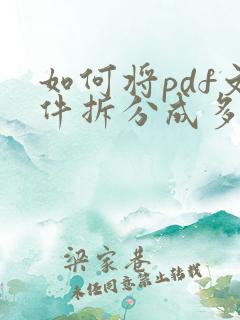 如何将pdf文
件拆分成多
梁家巷
未经同意禁止转载